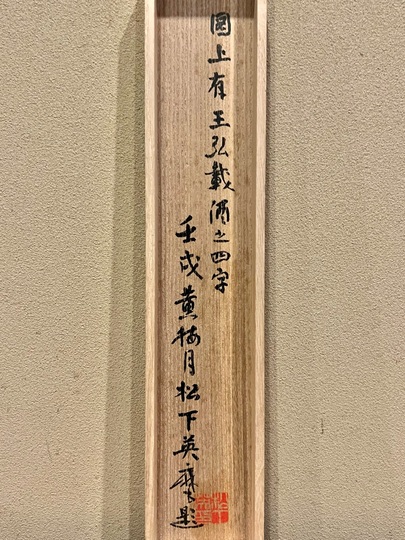 圖上有王弘載酒之四字
壬戌黄梅月松下英麿題